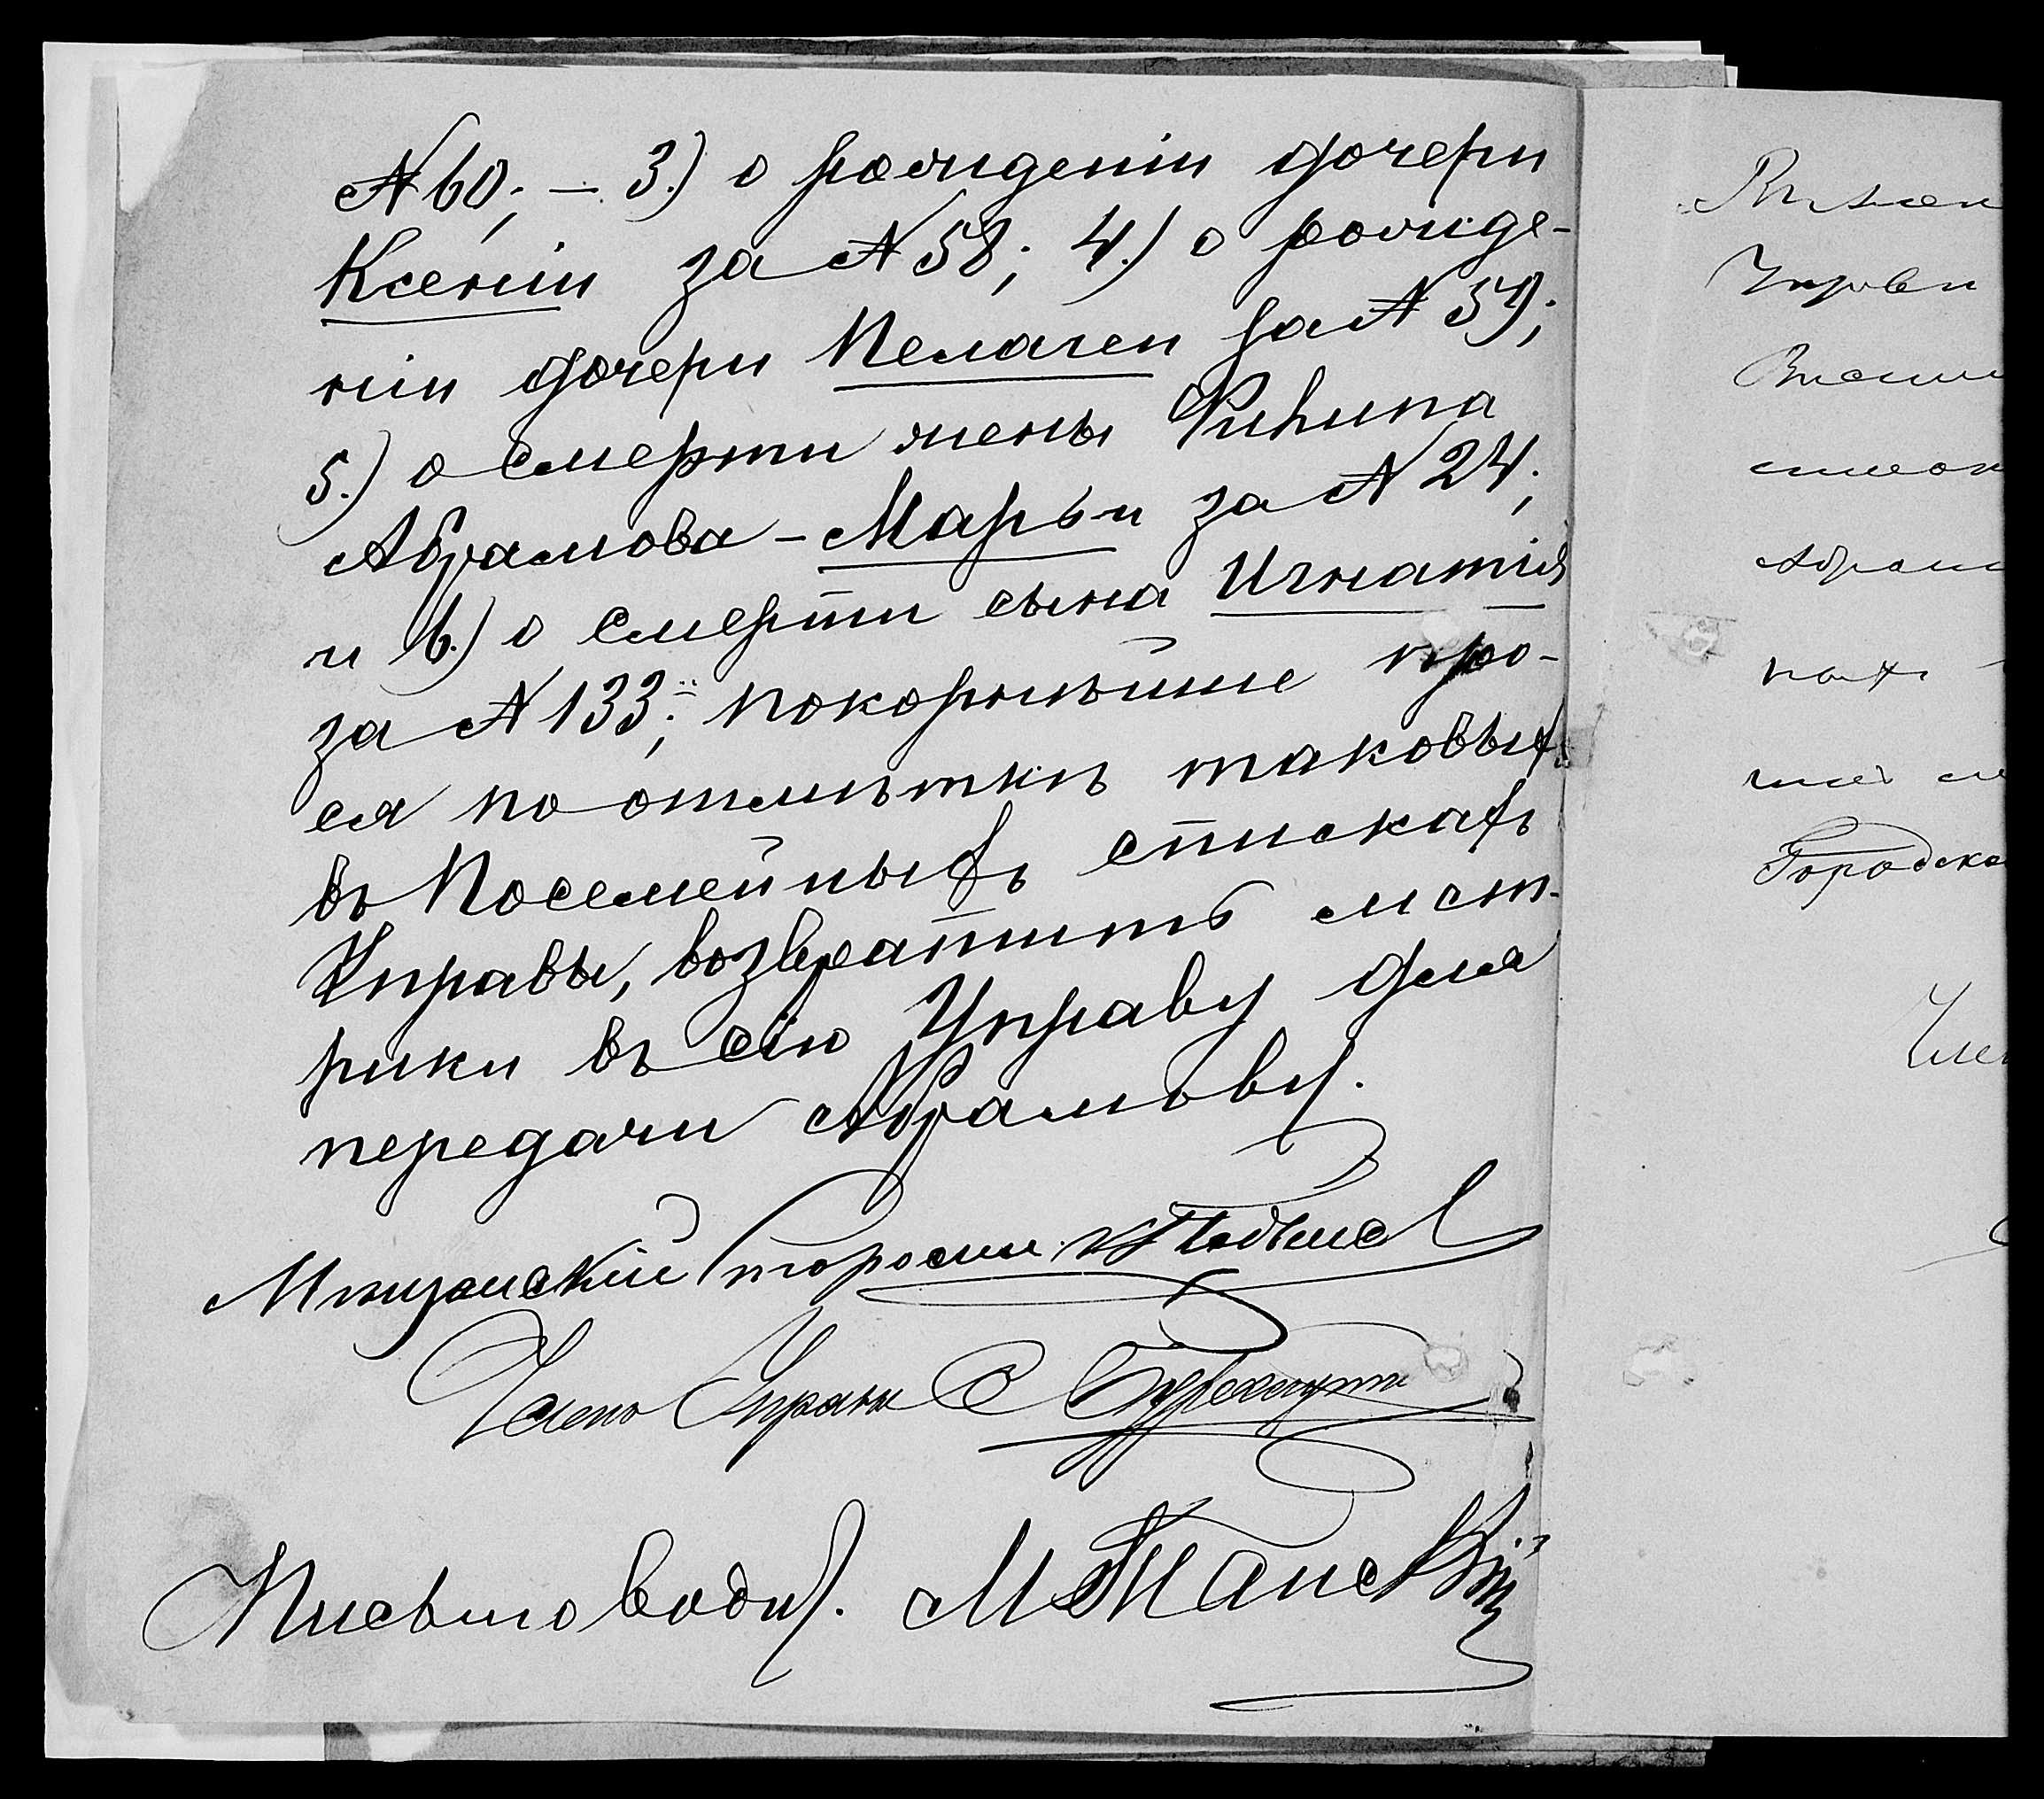 № 60; — 3.) о рожденiи дочери
Ксенiи за № 58; 4.) о рожде-
нiи дочери Пелагеи за № 59;
5.) о смерти жены Филипа
Абрамова - Марьи за № 24;
и 6.) о смерти сына Игнатiя
за № 133; покорнѣйше про-
ся по отмѣткѣ таковыхъ
въ Посемейныхъ спискахъ
Управы, возвратить мет-
рики въ сiю Управу для
передачи Абрамову.
Мѣщанскiй Староста
Членъ Управы
Письмоводит. М
Управы
Абрам
нахъ
Городско
Член